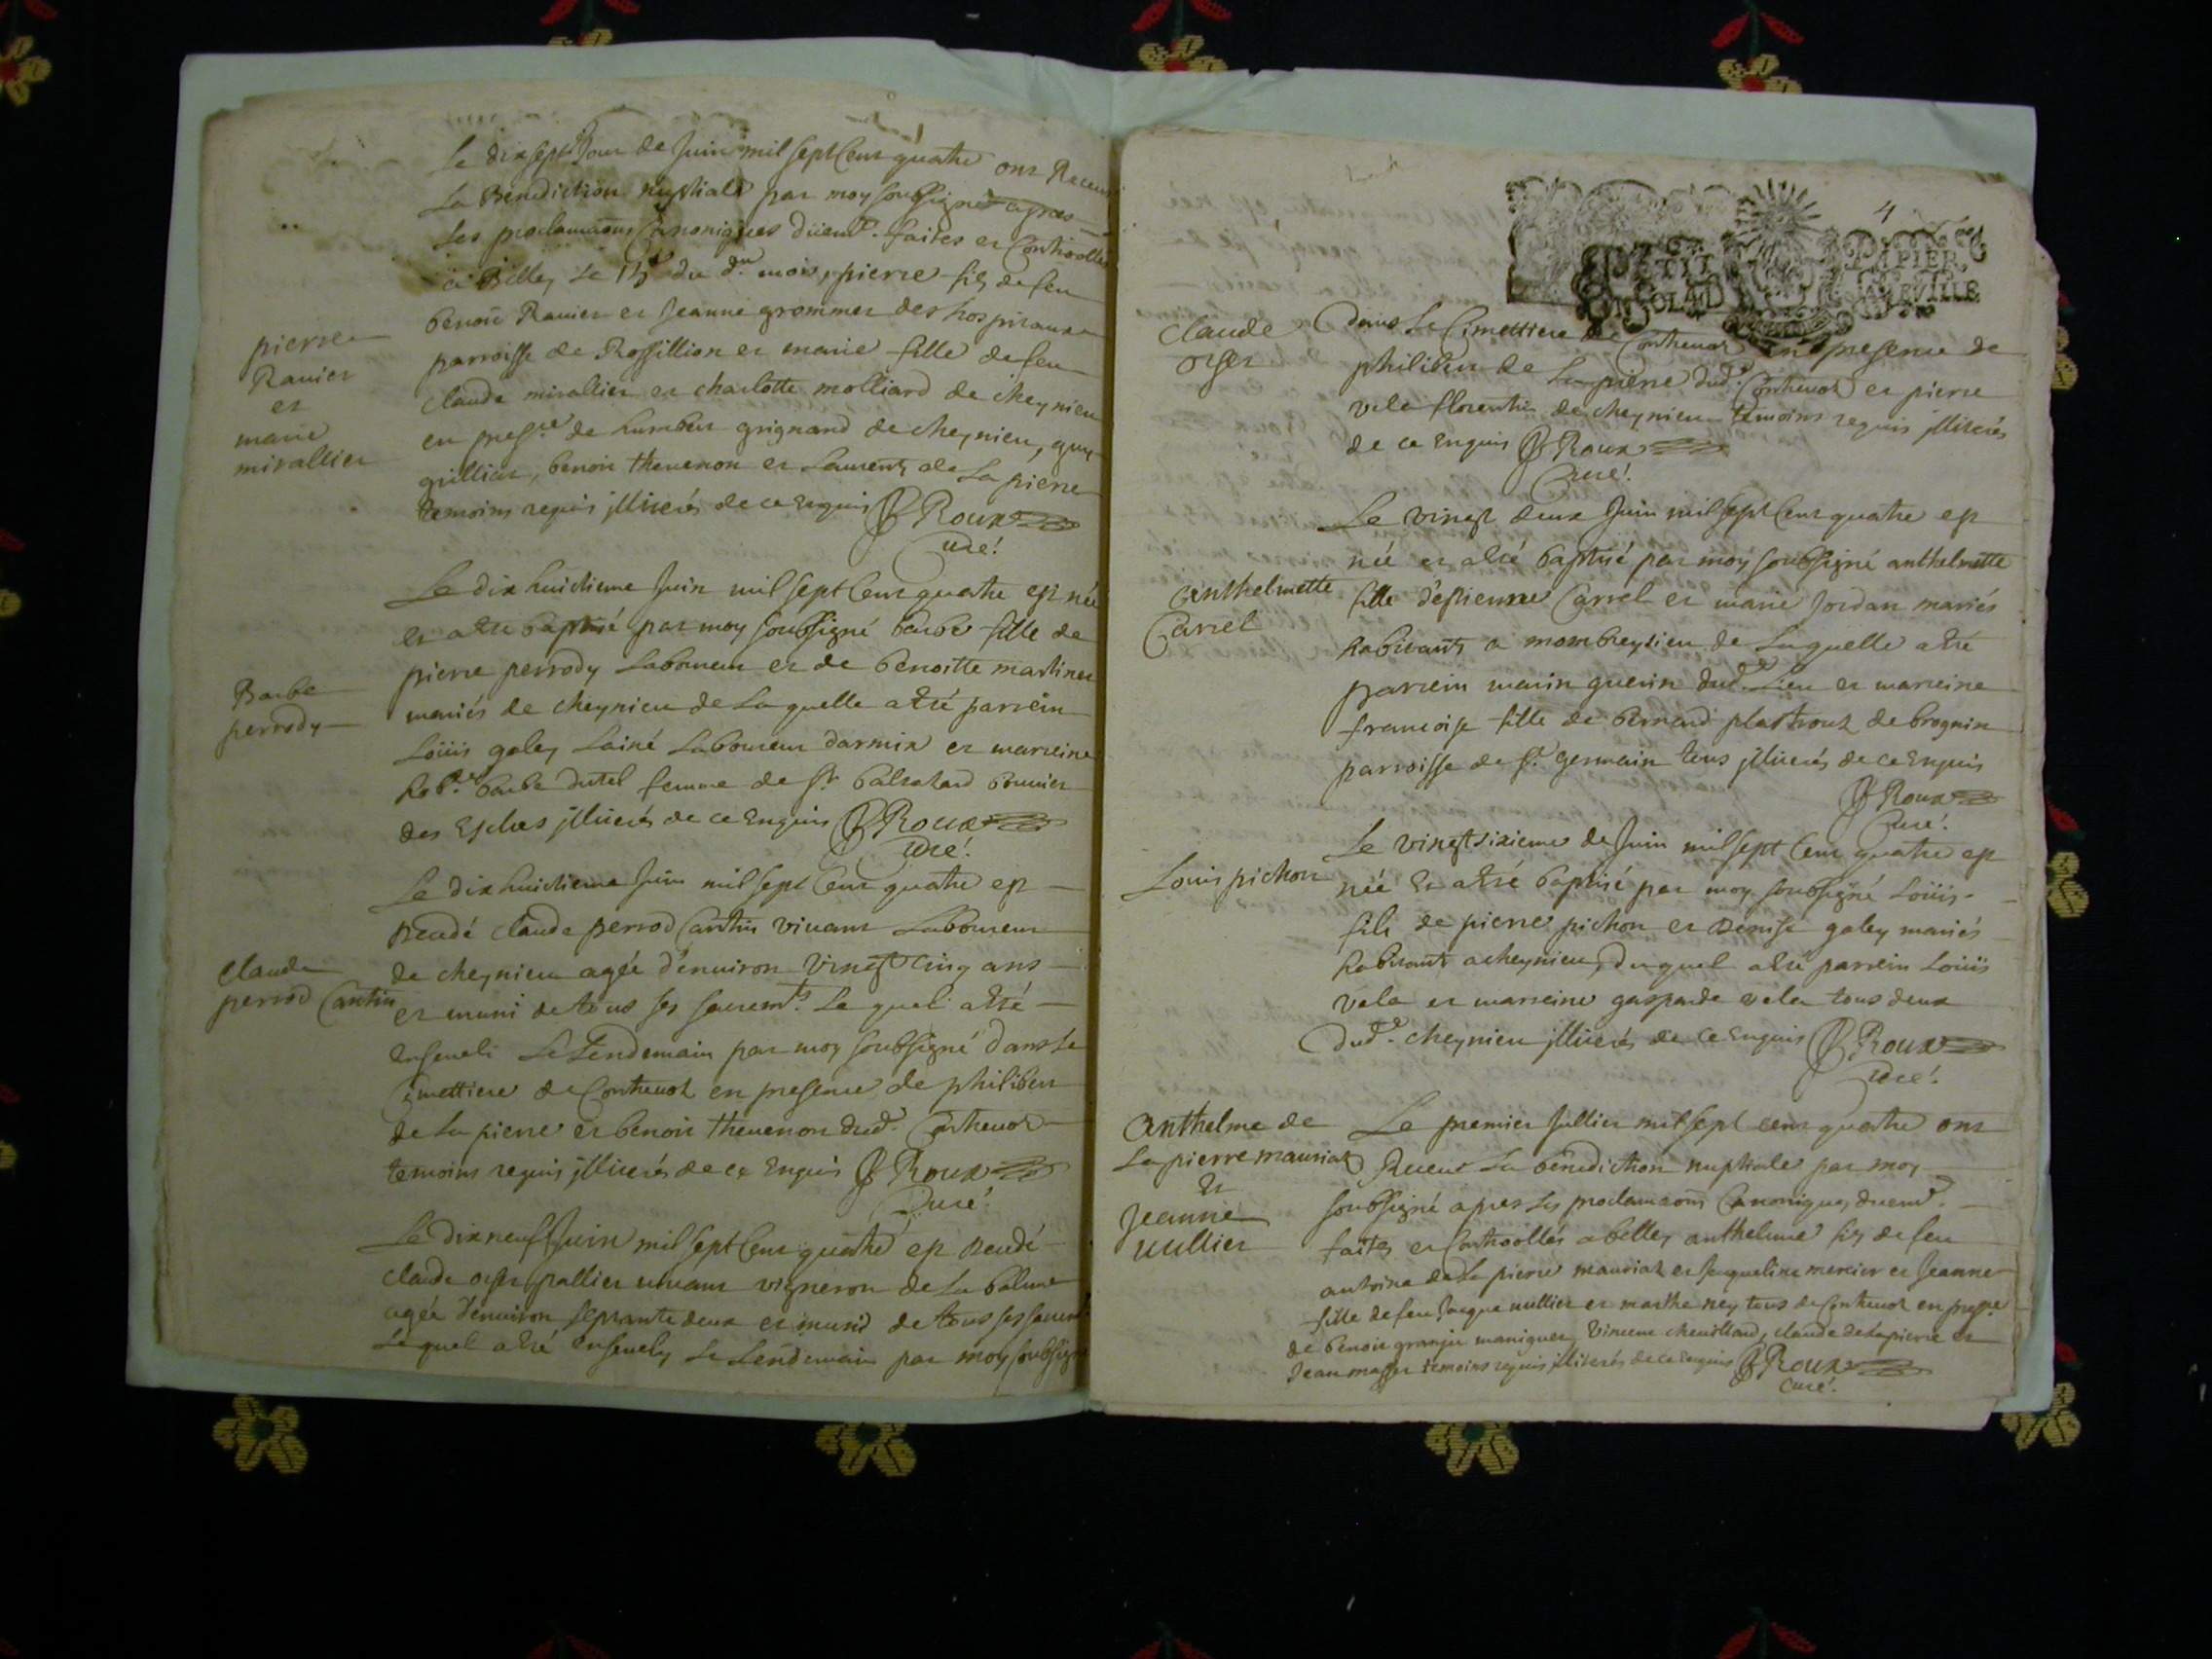 Le dix sept Jour de Juin mil sept Cent quatre ont Receu
La Benediction nuptiale par moy soubsigné apres
Les proclamaõns Canoniques düem.t faites et Controolles
à Belley Le 15e du d.t mois, pierre fils de feu
benoit Ranier et Jeanne grommet des hospitaux
pierre
Ranier
et
marie
mirallier
parroisse de Rossillion et marie fille de feu
claude mirallier et charlotte molliard de cheynieu
en pres.ce de humbert grignand de cheynieu, guy
grillier, benoit thevenon et Laurent de La pierre
temoins requis illiterés de ce Enquis Roux
Curé.
Le dix huictieme Juin mil sept Cent quatre est née
et a esté baptisé par moy soubsigné barbe fille de
Barbe
perrody
pierre perrody Laboureur et de benoitte martinet
mariés de cheynieu de Laquelle a esté parrein
Loüis galey Lainé Laboureur darmix et marreine
hob.e barbe dutel femme de Sr. balthazard
des Esches illiterés de ce Enquis Roux
Curé.
Le dix huictieme Juin mil sept Cent quatre est
Decedé claude perrod Cantin vivant Laboureur
Claude
perrod Cantin
de cheynieu agée d'environ vingt cinq ans
et muni de tous ses sacrem.ts Le quel a esté
Enseveli Le Lendemain par moy soubsigné dans Le
Cimettiere de Conthevoz en presence de philibert
de La pierre et benoit thevenon dud.t Conthevoz
temoins requis illiterés de ce Enquis Roux
Curé.
Le dix neuf Juin mil sept Cent quatre est Decedé
claude orset pallier vivant vigneron de La balme
agée d'environ septante deux et muni de tous ses sacrem.ts
Le quel a esté Ensevely Le Lendemain par moy soubsigné
4
PETIT PAPIER
Claude
orset
dans Le Cimettiere de Conthevoz en presence de
philibert de Lapierre dud.t Conthevoz et pierre
vela florentin de cheynieu temoins requis illiterés
de ce Enquis Roux
Curé.
Le vingt deux Juin mil sept Cent quatre est
née et a esté baptisé par moy soubsigné anthelmette
Anthelmette
Carrel
fille d'estienne Carrel et marie Jordan mariés
habitants a mombreysieu de Laquelle a esté
parrein marin guerin dud.t Lieu et marreine
francoise fille de Bernard plastrouz de brognin
parroisse de St. germain tous illiterés de ce Enquis
Roux
Curé.
Le vingt sixieme de Juin mil sept Cent quatre est
Louis pichon
née Et a esté baptisé par moy soubsigné Loüis
fils de pierre pichon et Denise galey mariés
habitants a cheynieu, duquel a esté parrein Loüis
vela et marreine gasparde vela tous deux
dud.t cheynieu illiterés de ce Enquis Roux
Curé.
Anthelme de
Lapierre mauriaz
Et
Jeanne
nullier
Le premier Jullier mil sept cent quatre ont
Receut La benediction nuptiale par moy
soubsigné apres Les proclamaõns Canoniques duem.t
faites et Controollés a belley anthelme fils de feu
antoine de La pierre mauriaz et Jacqueline mercier et Jeanne
fille de feu Jacque nullier et marthe ney tous de Conthevoz en pres.ce
de benoit granjer maniquet, Vincent chevillard, claude de Lapierre et
Jean masset temoins requis illiterés de ce Enquis Roux
Curé.